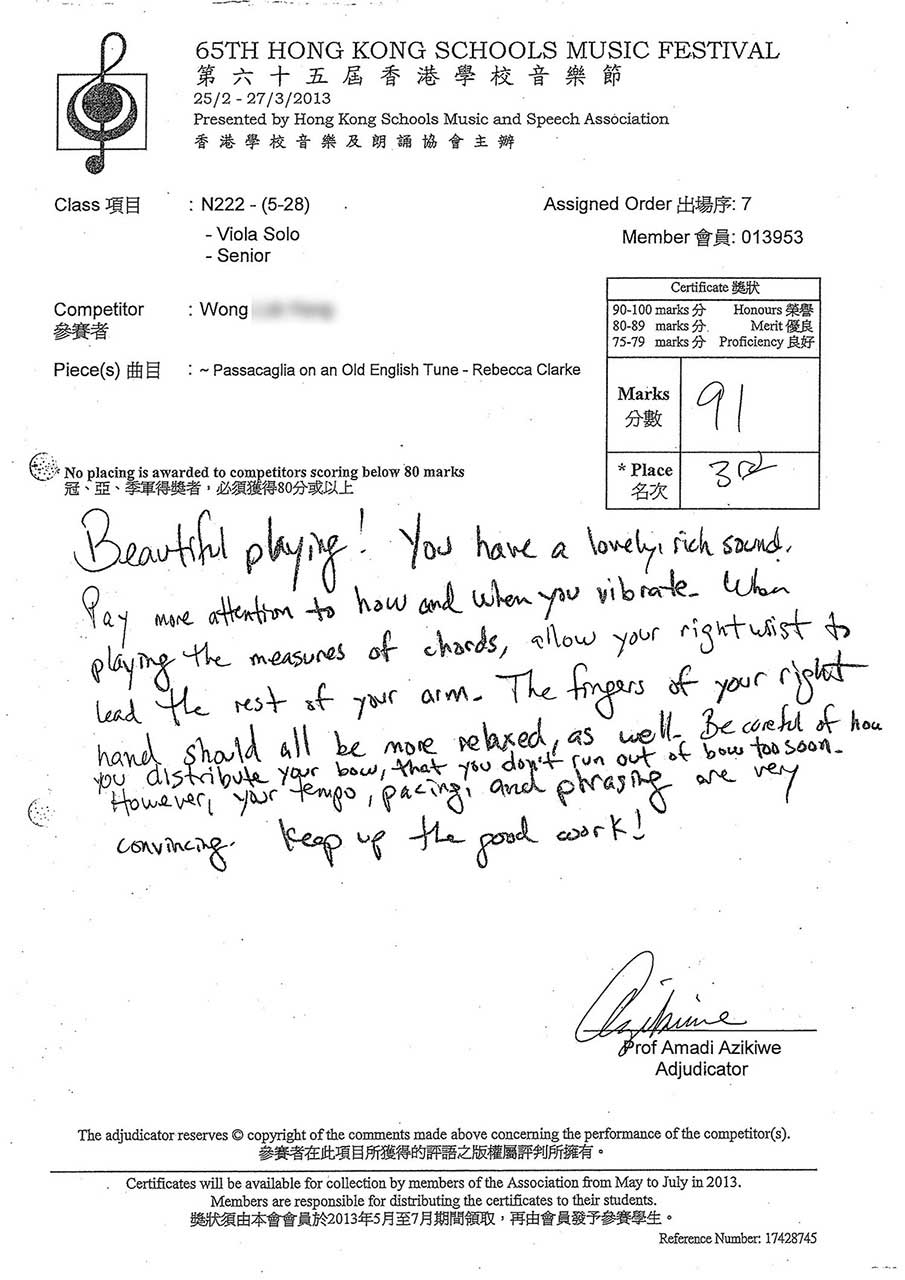 65TH HONG KONG SCHOOLS MUSIC FESTIVAL
第六十五屆香港學校音樂節
25/2 - 27/3/2013
Presented by Hong Kong Schools Music and Speech Association
香港學校音樂及朗誦協會主辦
Class 項目 : N222 - (5-28)
- Viola Solo
- Senior
Assigned Order 出場序: 7
Member 會員: 013953
Competitor : Wong
參賽者
Piece(s) 曲目 : ~ Passacaglia on an Old English Tune - Rebecca Clarke
Certificate 獎狀
90-100 marks 分 Honours 榮譽
80-89 marks 分 Merit 優良
75-79 marks 分 Proficiency 良好
Marks 91
分數
* Place 3rd
名次
No placing is awarded to competitors scoring below 80 marks
冠、亞、季軍得獎者，必須獲得80分或以上
Beautiful playing! You have a lovely, rich sound.
Pay more attention to how and when you vibrate. When
playing the measures of chords, allow your right wrist to
lead the rest of your arm. The fingers of your right
hand should all be more relaxed, as well. Be careful of how
you distribute your bow, that you don't run out of bow too soon.
However, your tempo, pacing, and phrasing are very
convincing. Keep up the good work!
Azikiwe
Prof Amadi Azikiwe
Adjudicator
The adjudicator reserves © copyright of the comments made above concerning the performance of the competitor(s).
參賽者在此項目所獲得的評語之版權屬評判所擁有。
Certificates will be available for collection by members of the Association from May to July in 2013.
Members are responsible for distributing the certificates to their students.
獎狀須由本會會員於2013年5月至7月期間領取，再由會員發予參賽學生。
Reference Number: 17428745